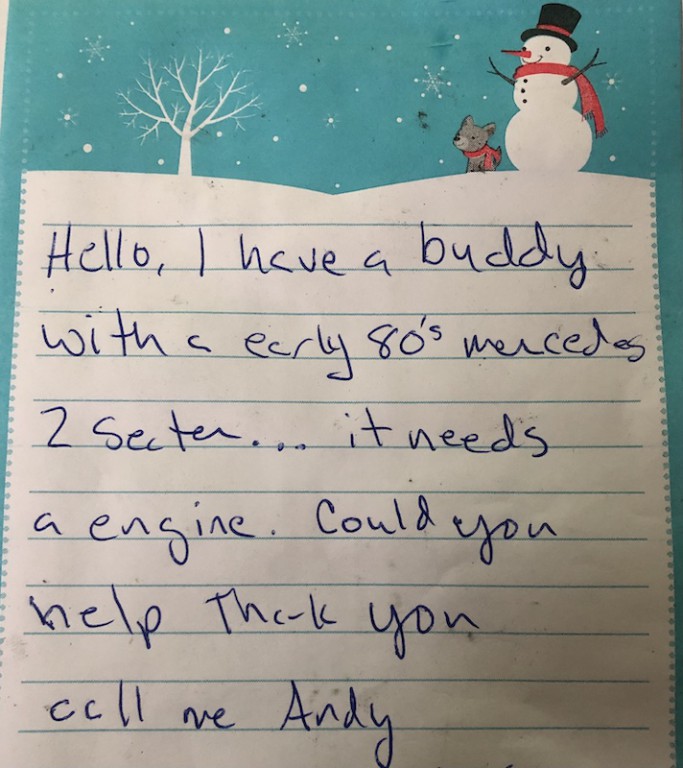 Hello, I have a buddy
with a early 80's mercedes
2 Seater... it needs
a engine. Could you
help Thank you
call me Andy